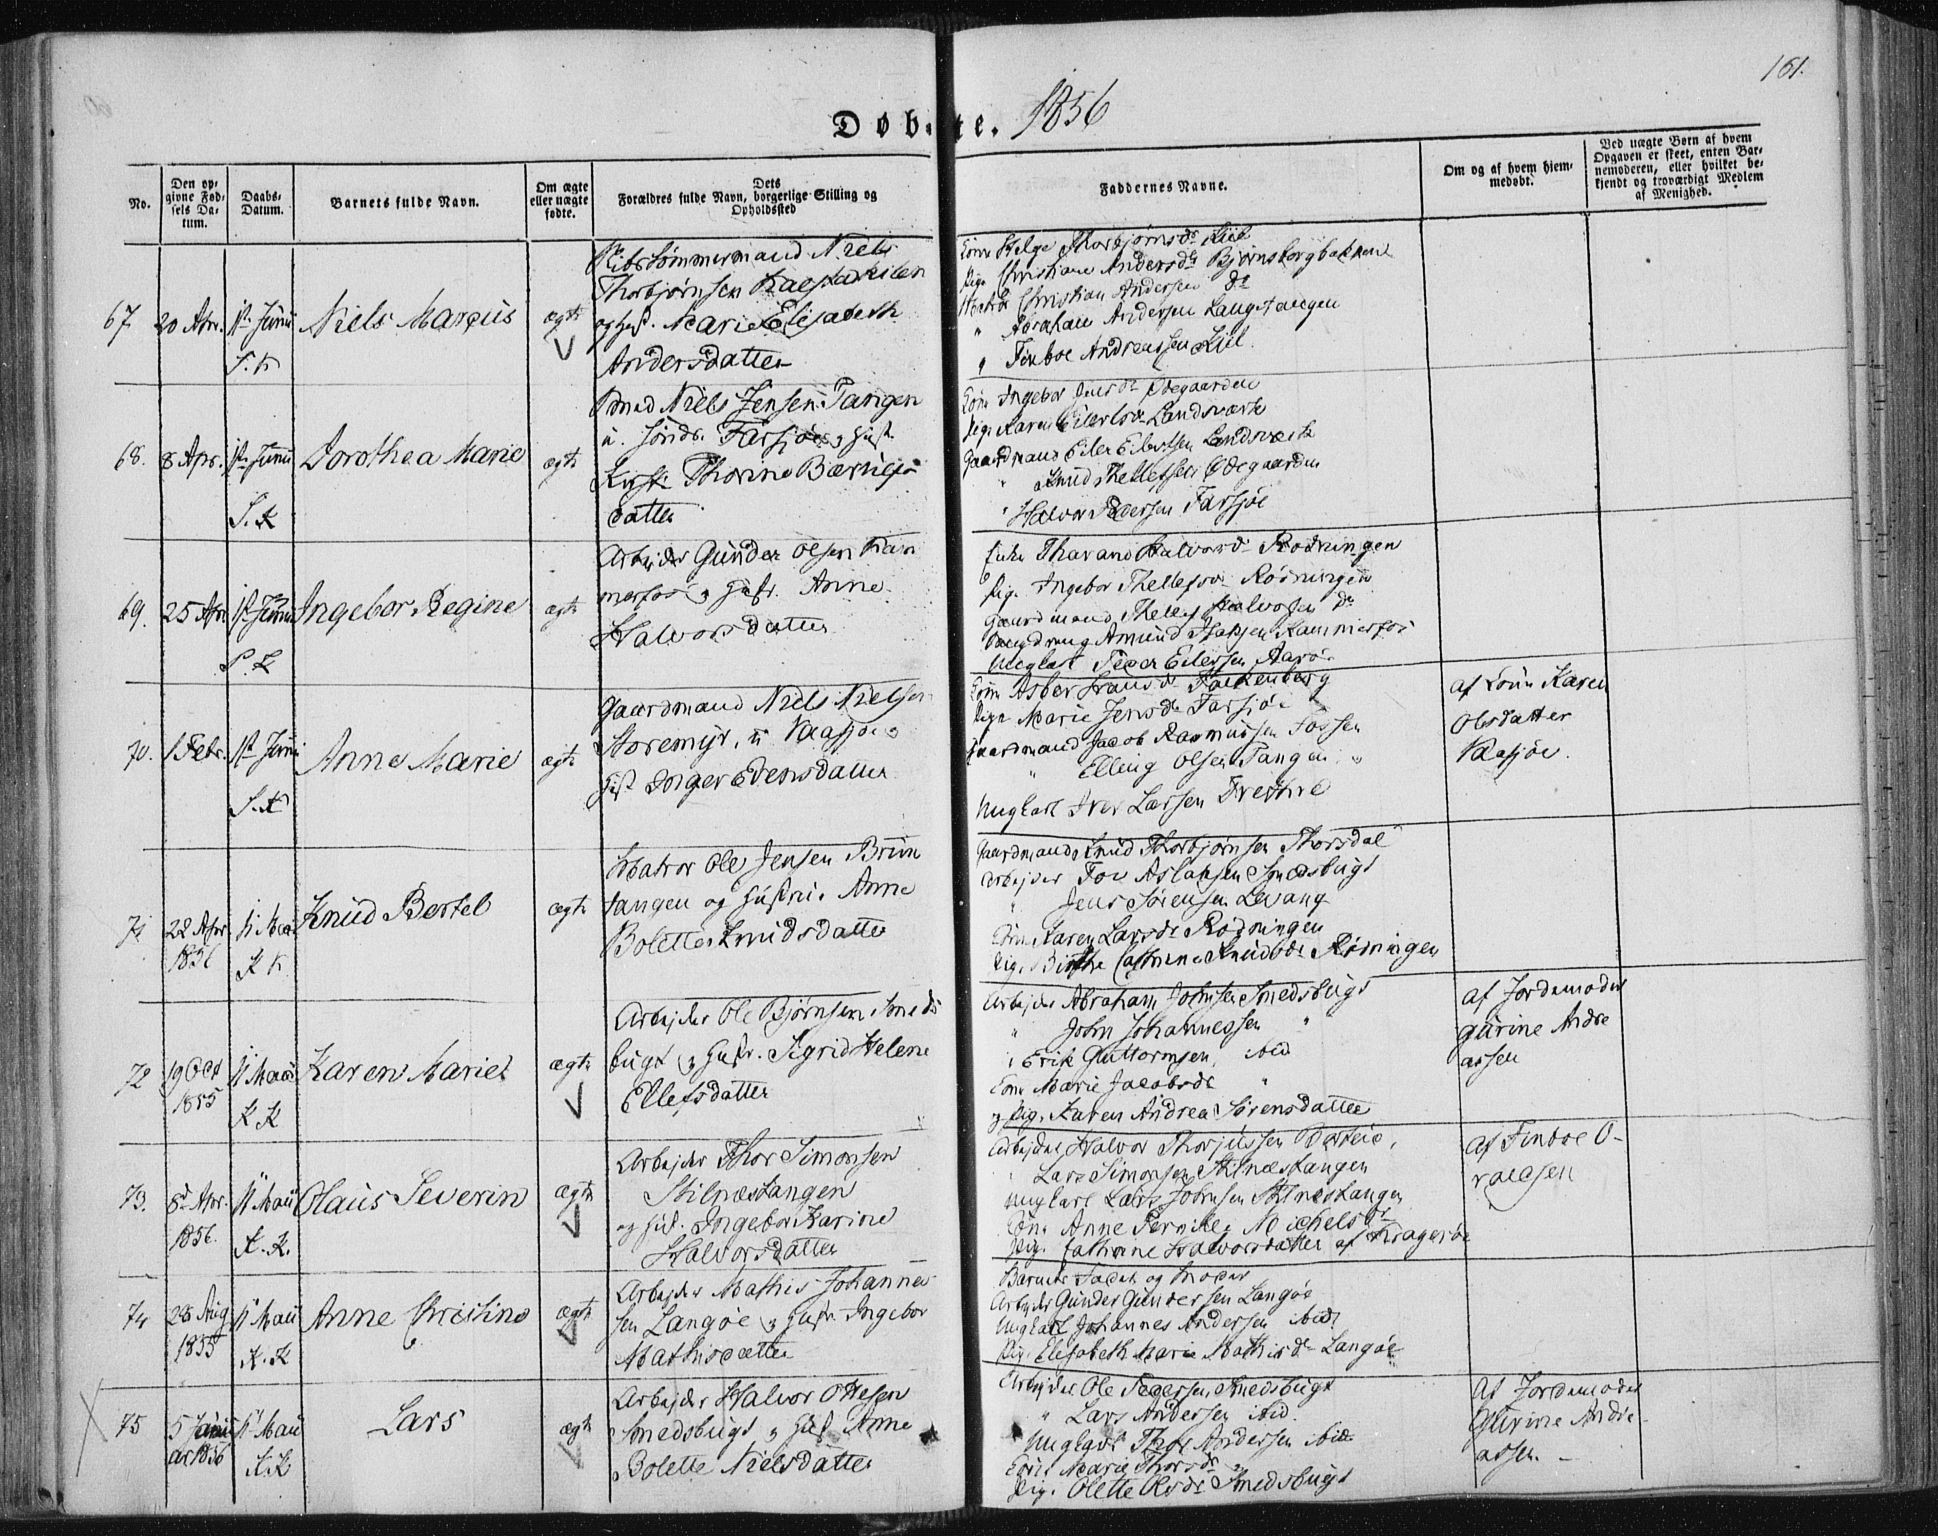 161.
Døbte. 1856
No.
Den op-
givne Fød-
sels Da-
tum.
Daabs-
Datum.
Barnets fulde Navn.
Om ægte
eller uægte
fødte.
Dets
Forældres fulde Navn, borgerlige Stilling og
Opholdssted
Faddernes Navne.
Om og af hvem hjem-
medøbt.
Ved uægte Børn af hvem
Opgaven er skeet, enten Bar-
nemoderen, eller hvilket be-
kjendt og troværdigt Medlem
af Menighed.
67
20 Apr.
1ste Juni
S. K
Niels Marcus
ægte
Skibstømmermand Niels
Thorbjørnsen
og Hust. Marie Elisabeth
Andersdatter
Kone Helge Thorbjørnsdr Kiil
Pige Christiane Andersdr Bjørnsborgbakkene
Christian Andersen do
" Abraham Andersen Langetangen
" Finboe Andreassen Kiil.
68.
8 Apr.
1ste Juni
S. K
Dorothea Marie
ægte
Niels Jensen Tangen
u. søndr. Farsjøe og Hust.
Thorine
datter
Kone Ingebor Jensdr Ødegaarden
Pige Karen Eilertsdr Landsværk
Gaardmand Eiler Eilertsen Landsværk
" Knud Thellefsen Ødegaarden
" Halvor Pedersen Farsjøe
69.
25 Apr
1ste Juni
S. K
Ingebor Regine
ægte
Arbejder Gunder Olsen Kam
merfos og Hustr. Anne
Halvorsdatter
Enke Halvorsdr Rødningen
Pige Ingebor Thellefsdr Rødningen
Gaardmand Thellef Halvorsen do
Amund Isaksen Kammerfos
Ungkarl Peder Eilersen Aarøe
70.
1 Febr.
1ste Juni
S. K
Anne Marie
ægte
Gaardmand Niels Nielsen
Storemyr, u Vaasjøe og
Hust Inger Edvensdatter
Kone Asber Hansdr Falkenberg
Pige Marie Jensdr Farsjøe
Gaardmand Jacob Rasmussen Fossen
" Elling Olsen Tangen "
Ungkarl Iver Larsen
af Kone Karen
Olsdatter
Vaasjøe.
71
22 Apr
1856
11 Mai
K K
Knud Bertel
ægte
Matros Ole Jensen Brun
tangen og Hustrue Anne
Bolette Knudsdatter
Gaardmand Knud Thorbjørnsen Thorsdal
Arbejder Tov Aslaksen Smedsbugt
" Jens Sørensen Levang
Kone Karen Larsdr Rødningen
Pige Birthe Cathrine Knudsdr Rødningen
72
19 Oct
1855
11 Mai
K K
Karen Marie
ægte
Arbejder Ole Bjørnsen Smeds
bugt og Hustr. Sigrid Helene
Ellefsdatter
Arbejder Abraham Johnsen Smedsbugt
" John Johannessen "
" Erik Guttormsen ibid
Kone Marie Jacobsdr "
og Pige Karen Andrea Sørensdatter
af Jordemoder
Gurine Andre
assen
73.
8d Apr.
1856.
11 Mai
K. K.
Olaus Severin
ægte
Arbejder Thor Simonsen
Stilnæstangen
og Hust. Ingebor Karine
Halvorsdatter
Arbejder Halvor Thorjussen
" Lars Simonsen Stilnæstangen
Ungkarl Lars Johnsen Stilnæstangen
Kone Anne Pernille Michelsdr
Pige Cathrine Halvorsdatter af Kragerøe
af Finboe O-
74
28 Aug
1855
11 Mai
K. K
Anne Christine
ægte
Arbejder Mathis Johanne
sen Langøe og Hustr. Ingebor
Mathisdatter
Barnets Fader og Moder
Arbejder Gunder Gundersen Langøe
Ungkarl Johannes Andersen ibid
Pige Elisabeth Marie Mathisdr Langøe
75
5 Janu
ar 1856
11 Mai
K. K
Lars
ægte
Arbejder Halvor Ottesen
Smedsbugt og Hust Anne
Bolette Nielsdatter
Arbejder Ole Pedersen Smedsbugt
" Lars Andersen ibid.
Ungkarl Thor Andersen ibid
Kone Marie Thorsdr "
Pige Olette Smedsbugt
Af Jordemoder
Gurine Andre-
assen. -